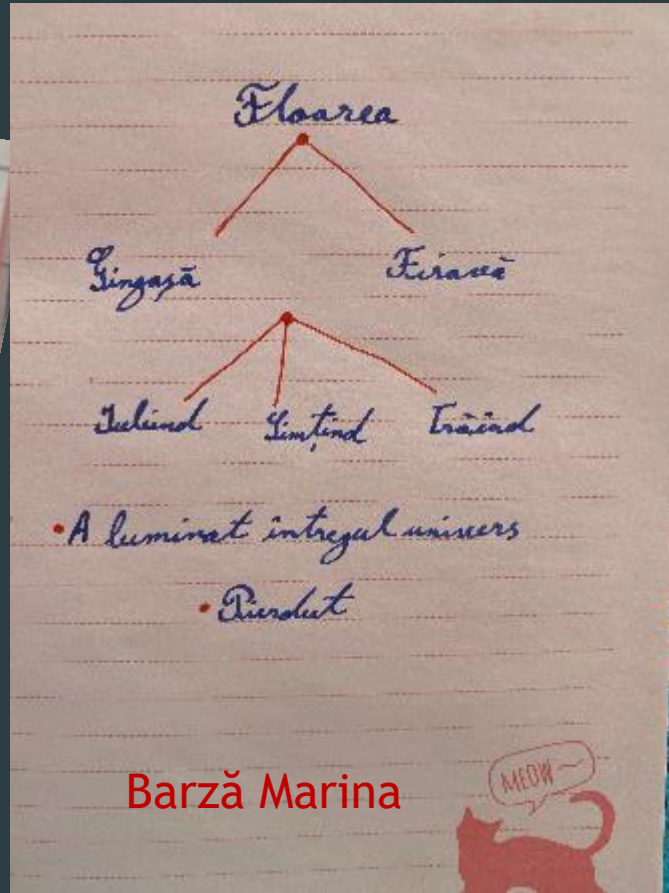 Floarea
Gingașă Firavă
Iubind Simțind Trăind
• A luminat întregul univers
• Pierdut
Barză Marina
MEOW~